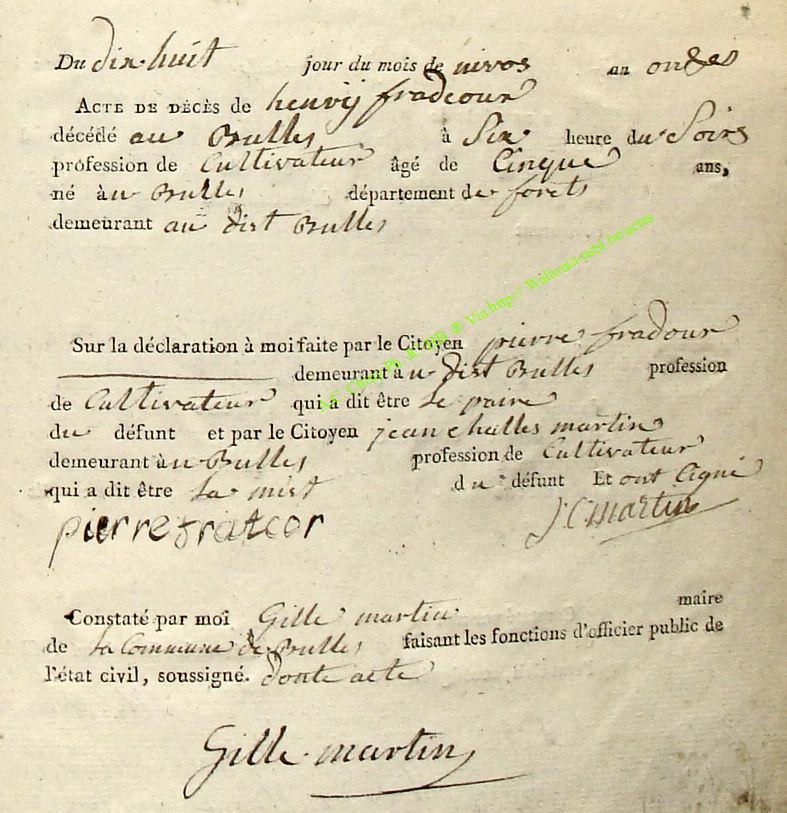 Du dix huit jour du mois de nivos an onses
ACTE DE DÉCÈS de henrij fradcour
décédé au Brulles à Six heure du Soirs
profession de Cultivateur âgé de Cinque ans,
né à u Brulles département de forets
demeurant au dist Brulles
Sur la déclaration à moi faite par le Citoyen pierre fradour
demeurant à u dist Brulles profession
de Cultivateur qui a dit être Le paire
du défunt et par le Citoyen jean challes martin
demeurant à u Brulles profession de Cultivateur
qui a dit être La mist du défunt Et ont Cigné
pierre fratcor J C martin
Constaté par moi Gille martin maire
de La Commune de Brulles faisant les fonctions d'officier public de
l'état civil, soussigné. donte acte
Gille martin